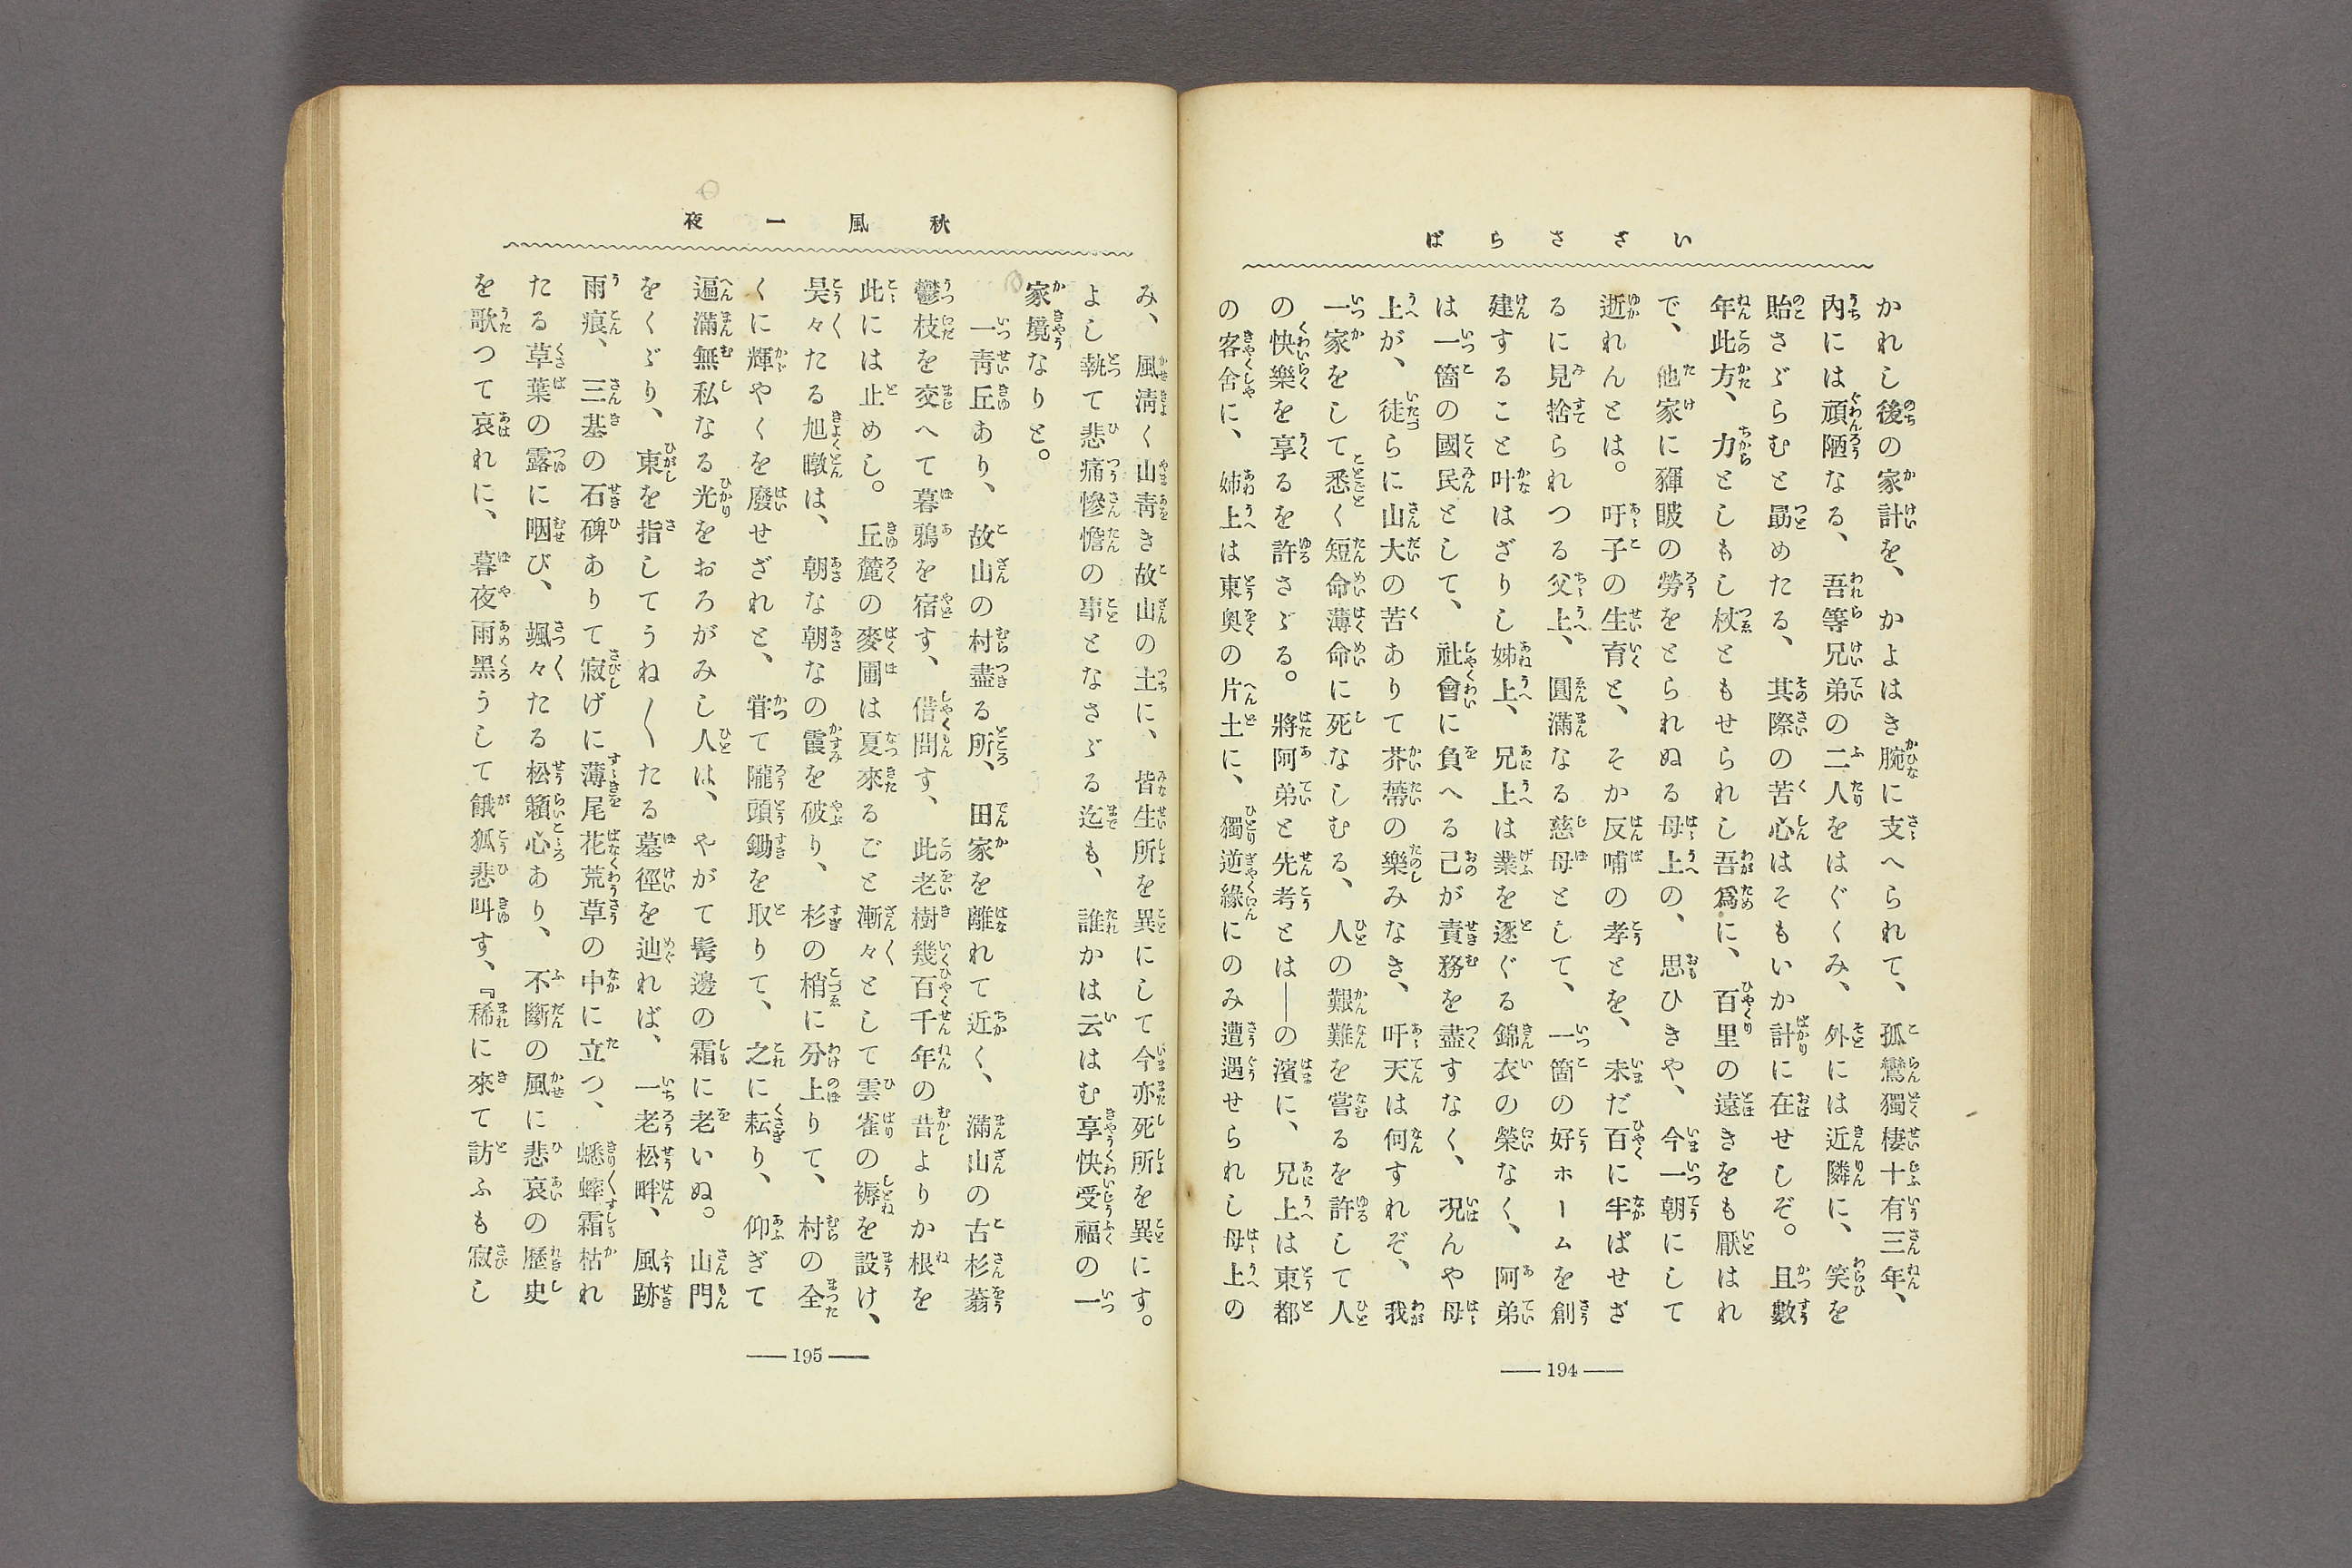 いささらば
かれし後の家計を、かよはき腕に支へられて、孤鸞獨棲十有三年、
內には頑陋なる、吾等兄弟の二人をはぐくみ、外には近隣に、笑を
貽さゞらむと勗めたる、其際の苦心はそもいか計に在せしぞ。且數
年此方、力としもし杖ともせられし吾爲に、百里の遠きをも厭はれ
で、他家に齎賍の勞をとられぬる母上の、思ひきや、今一朝にして
逝れんとは。吁子の生育と、そか反哺の孝とを、未だ百に半ばせざ
るに見捨られつる父上、圓滿なる慈母として、一箇の好ホームを創
建すること叶はざりし姊上、兄上は業を逐ぐる錦衣の榮なく、阿弟
は一箇の國民として、社會に負へる己が責務を盡すなく、况んや母
上が、徒らに山大の苦ありて芥蔕の樂みなき、吁天は何すれぞ、我
一家をして悉く短命薄命に死なしむる、人の艱難を嘗るを許して人
の快樂を享るを許さゞる。將阿弟と先考とは——の濱に、兄上は東都
の客舍に、姊上は東奧の片土に、獨逆緣にのみ遭遇せられし母上の
—— 194 ——
秋風一夜
み、風淸く山靑き故山の土に、皆生所を異にして今亦死所を異にす。
よし執て悲痛慘憺の事となさゞる迄も、誰かは云はむ享快受福の一
家境なりと。
一靑丘あり、故山の村盡る所、田家を離れて近く、滿山の古杉蓊
鬱枝を交へて暮鴉を宿す、借問す、此老樹幾百千年の昔よりか根を
此には止めし。丘麓の麥圃は夏來るごと漸々として雲雀の褥を設け、
杲々たる旭暾は、朝な朝なの霞を破り、杉の梢に分上りて、村の全
くに輝やくを廢せざれと、甞て隴頭鋤を取りて、之に耘り、仰ぎて
遍滿無私なる光をおろがみし人は、やがて髩邊の霜に老いぬ。山門
をくゞり、東を指してうね〱たる墓徑を辿れば、一老松畔、風跡
雨痕、三基の石碑ありて寂げに薄尾花荒草の中に立つ、蟋蟀霜枯れ
たる草葉の露に咽び、颯々たる松籟心あり、不斷の風に悲哀の歷史
を歌つて哀れに、暮夜雨黑うして餓狐悲叫す、『稀に來て訪ふも寂し
—— 195 ——